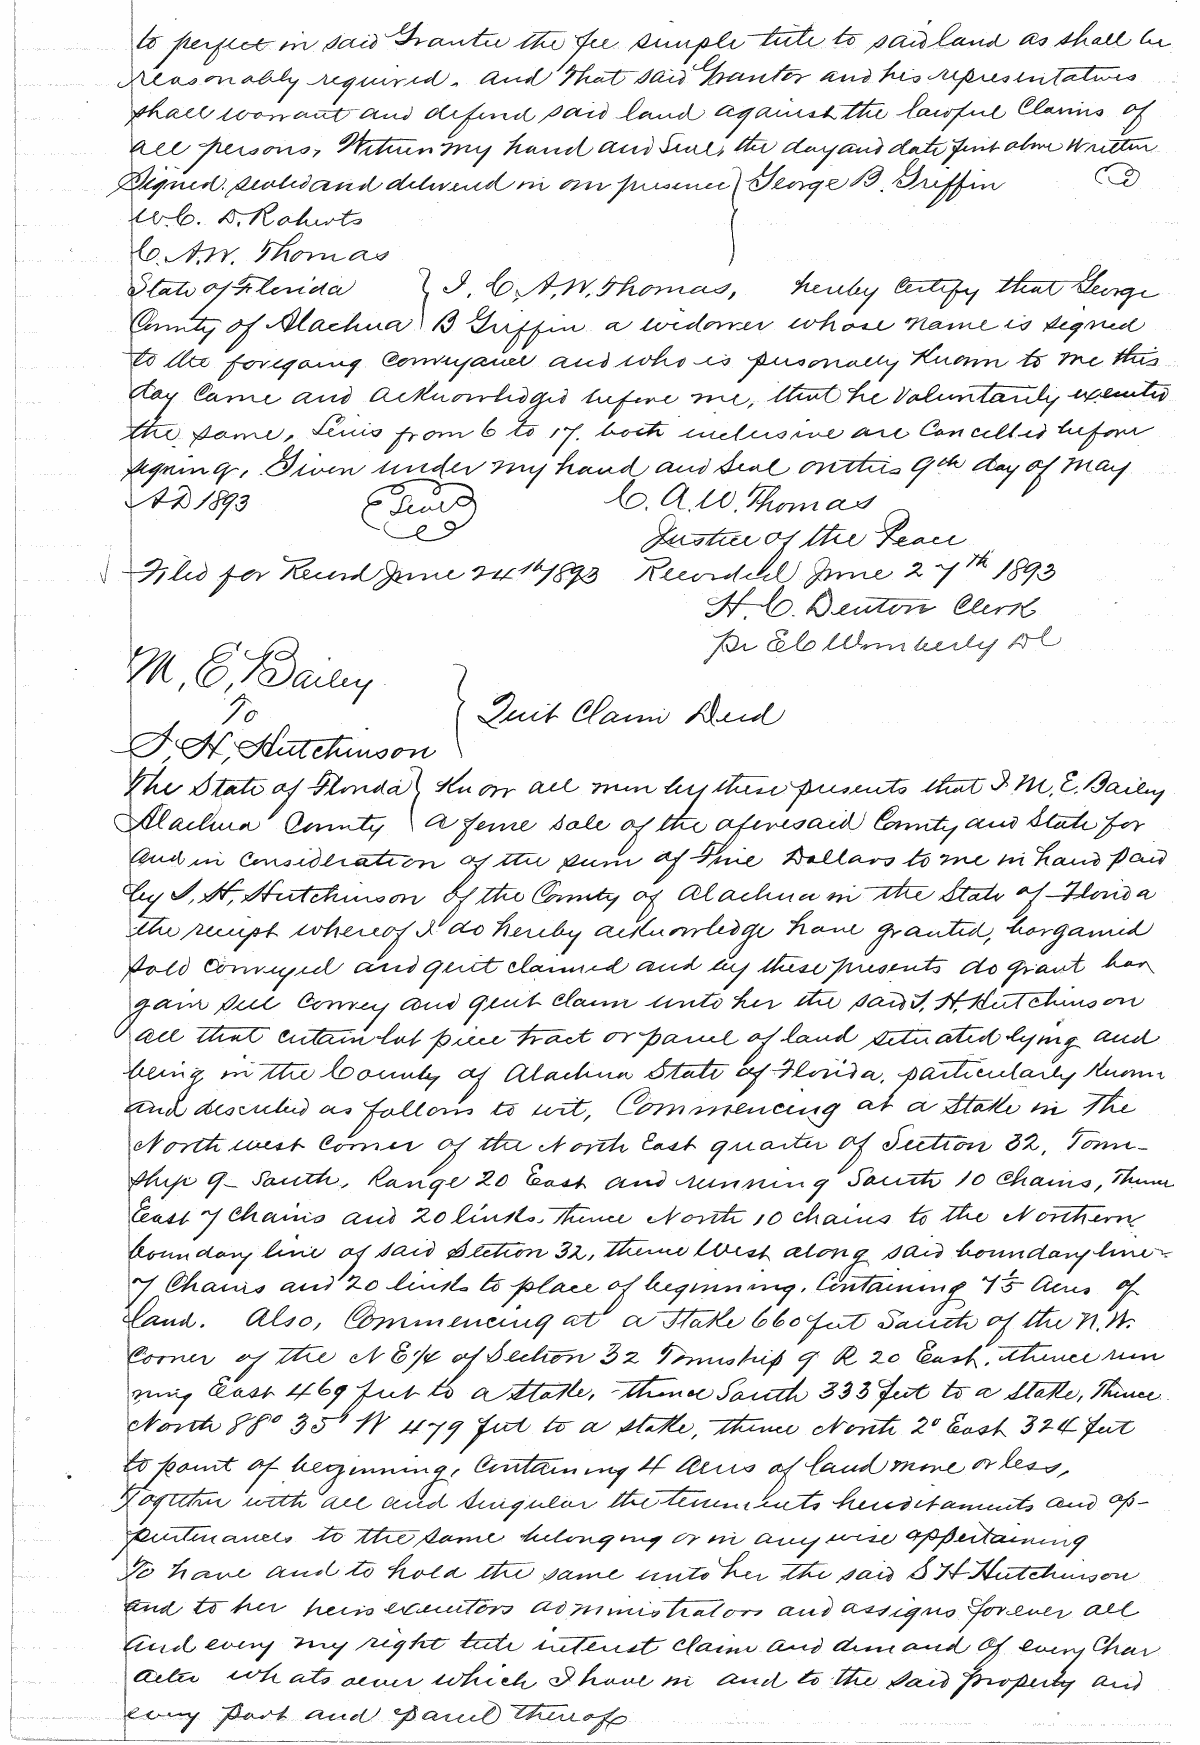 to perfect in said Grantee the fee simple title to said land as shall be
reasonably required. and that said Grantor and his representatives
shall warrant and defend said land against the lawful Claims of
all persons, Witness my hand and Seal, the day and date first above written
Signed, sealed and delivered in our presence } George B. Griffin
W. C. D. Roberts
C. A. W. Thomas
State of Florida } I, C. A. W. Thomas, hereby certify that George
County of Alachua } B Griffin a widower whose name is signed
to the foregoing Conveyance and who is personally Known to me this
day Came and acknowledged before me, that he Voluntarily executed
the same, Lines from 6 to 17. both inclusive are Cancelled before
signing, Given under my hand and Seal on this 9th day of May
AD 1893 Seal C. A. W. Thomas
Justice of the Peace
Filed for Record June 24th 1893 Recorded June 27th 1893
H. C. Denton Clerk
pr E C Wimberly DC
M, E, Bailey
To } Quit Claim Deed
S, H, Hutchinson
The State of Florida } Know all men by these presents that I M, E. Bailey
Alachua County } a feme sole of the aforesaid County and State for
and in consideration of the sum of Five Dollars to me in hand paid
by S, H, Hutchinson of the County of Alachua in the State of Florida
the receipt whereof I do hereby acknowledge have granted, bargained
sold conveyed and quit claimed and by these presents do grant bar
gain sell Convey and quit claim unto her the said S. H. Hutchinson
all that certain lot piece tract or parcel of land situated lying and
being in the County of Alachua State of Florida, particularly Known
and described as follows to wit, Commencing at a Stake in the
North west Corner of the North East quarter of Section 32, Town-
ship 9- South, Range 20 East and running South 10 Chains, Thence
East 7 Chains and 20 links, thence North 10 chains to the Northern
boundary line of said Section 32, thence West along said boundary line-
7 Chains and 20 links to place of beginning, Containing 7 1/5 Acres of
land. Also, Commencing at a Stake 660 feet South of the N. W.
Corner of the N E 1/4 of Section 32 Township 9 R 20 East, thence run
ning East 469 feet to a stake, thence South 333 feet to a stake, Thence
North 88° 35' W 479 feet to a stake, thence North 2° East 324 feet
to point of beginning, Containing 4 Acres of land more or less,
Together with all and singular the tenements hereditaments and ap-
purtenances to the same belonging or in any wise appertaining
To have and to hold the same unto her the said S H Hutchinson
and to her heirs executors administrators and assigns forever all
and every my right title interest claim and demand of every Char
acter whatsoever which I have in and to the said property and
every part and parcel thereof